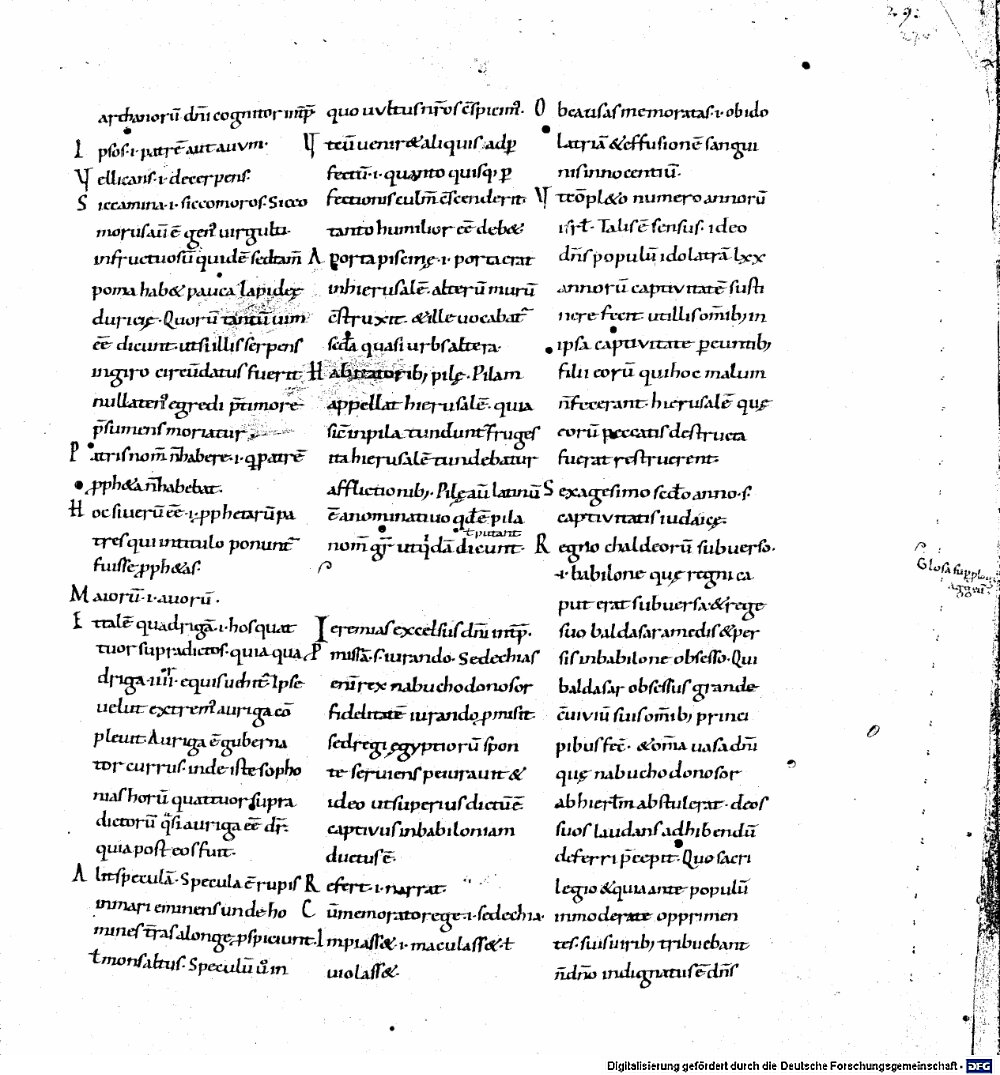 29.
270
archanorū dñi cognitor imp̄
I psos .i. patrē aut auum.
V ellicans .i. decerpens.
S iccamina .i. siccomoros. Sicco
morus aū ē gen᾽ uirgulti
infructuosū quidē sed tam̄
poma hab& pauca lapideę
duricię. Quorū tantū uim
eē dicunt ut si illis serpens
in giro circūdatus fuerit
nullaten᾽ egredi p̄ timore
p̄sumens moriatur
P atris nom̄ ñ habere .i. q patrē
pph&ā ñ habebat.
H oc si uerū eē .i. pphetarū pa
tres qui in titulo ponunt᾽
fuisse pph&as.
M aiorū .i. auorū.
E t talē quadrigā .i. hos quat
tuor supradictos. quia qua
driga .iiii. equis uehit᾽. Ipse
uelut extrem᾽ auriga cō
pleuit. Auriga ē guberna
tor currus. inde iste sopho
nias horū quattuor supra
dictorū q̄si auriga eē dr̄.
quia post eos fuit.
A lit speculā. Specula ē rupis
in mari eminens unde ho
mines t̄ras a longe pspiciunt.
ł mons altus. Speculū ů in
quo uultus nr̄os c̄spicim᾽.
V t cū uenir& aliquis ad p
fectū .i. quanto quisq; p
fectionis culm̄ c̄scenderit
tanto humilior eē deb&
A porta piscinę .i. porta erat
in hierusalē. alterū murū
c̄struxit. & ille uocabat᾽
sc̄da quasi urbs altera.
H abitatorib; pilę. Pilam
appellat hierusalē. quia
sic̄ in pila tundunt᾽ fruges
ita hierusalē tundebatur
afflictionib;. Pilę aū latinū
ē a nominatiuo qd̄ ē pila
ł putant
nom̄ gr̄ ut qdā dicunt.
I eremias excelsus dñi imp̄.
P missā .s. iurando. Sedechias
eni rex nabuchodonosor
fidelitatē iurando pmisit
sed regi egyptiorū spon
te seruiens peiurauit &
ideo ut superius dictū ē
captiuus in babiloniam
ductus ē.
R efert .i. narrat.
C ū memorato rege .i. sedechia.
I mpiass& .i. maculass& ł
uiolass&.
O beatisas memoratas .i. ob ido
latriā & effusionē sangui
nis innocentiū.
V t c̄pl&o numero annorū
isrł. Talis ē sensus. ideo
dñs populū idolatrā lxx
annorū captiuitatē susti
nere fecit ut illis omib; in
ipsa captiuitate peuntib;
filii eorū qui hoc malum
ñ fecerant. hierusalē quę
eorū peccatis destructa
fuerat restruerent.
S exagesimo sc̄do anno .s.
captiuitatis iudaicę.
R egno chaldeorū subuerso.
.i. babilone quę regni ca
put erat subuersa & rege
suo baldasar a medis & per
sis in babilone obsesso. Qui
baldasar obsessus grande
c̄uiuiū suis omib; princi
pibus fec̄. & om̄a uasa dñi
quę nabuchodonosor
ab hierłm abstulerat. deos
suos laudans adhibendū
deferri p̄cepit. Quo sacri
legio & quia ante populū
inmoderate opprimen
tes. suis uirib; tribuebant
ñ dño indignatus ē dñs
Glosa supplon
aggeū.
Digitalisierung gefördert durch die Deutsche Forschungsgemeinschaft - DFG